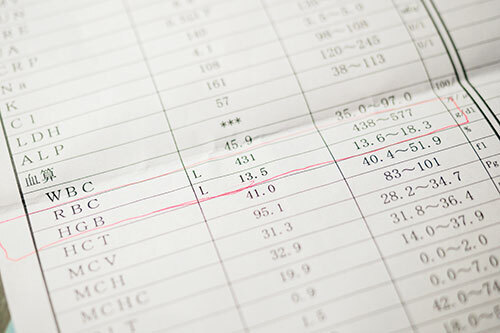 CRP
Na 140
K 4.1
Cl 108 98～108
LDH 161 120～245 U/l
ALP 57 38～113 U/l
血算 ***
WBC 45.9 35.0～97.0 100/
RBC L 431 438～577
HGB L 13.5 13.6～18.3 g/dl
HCT 41.0 40.4～51.9 %
MCV 95.1 83～101 fl
MCH 31.3 28.2～34.7
MCHC 32.9 31.8～36.4
19.9 14.0～37.9
0.9 0.0～2.0
1.5 0.0～7.0